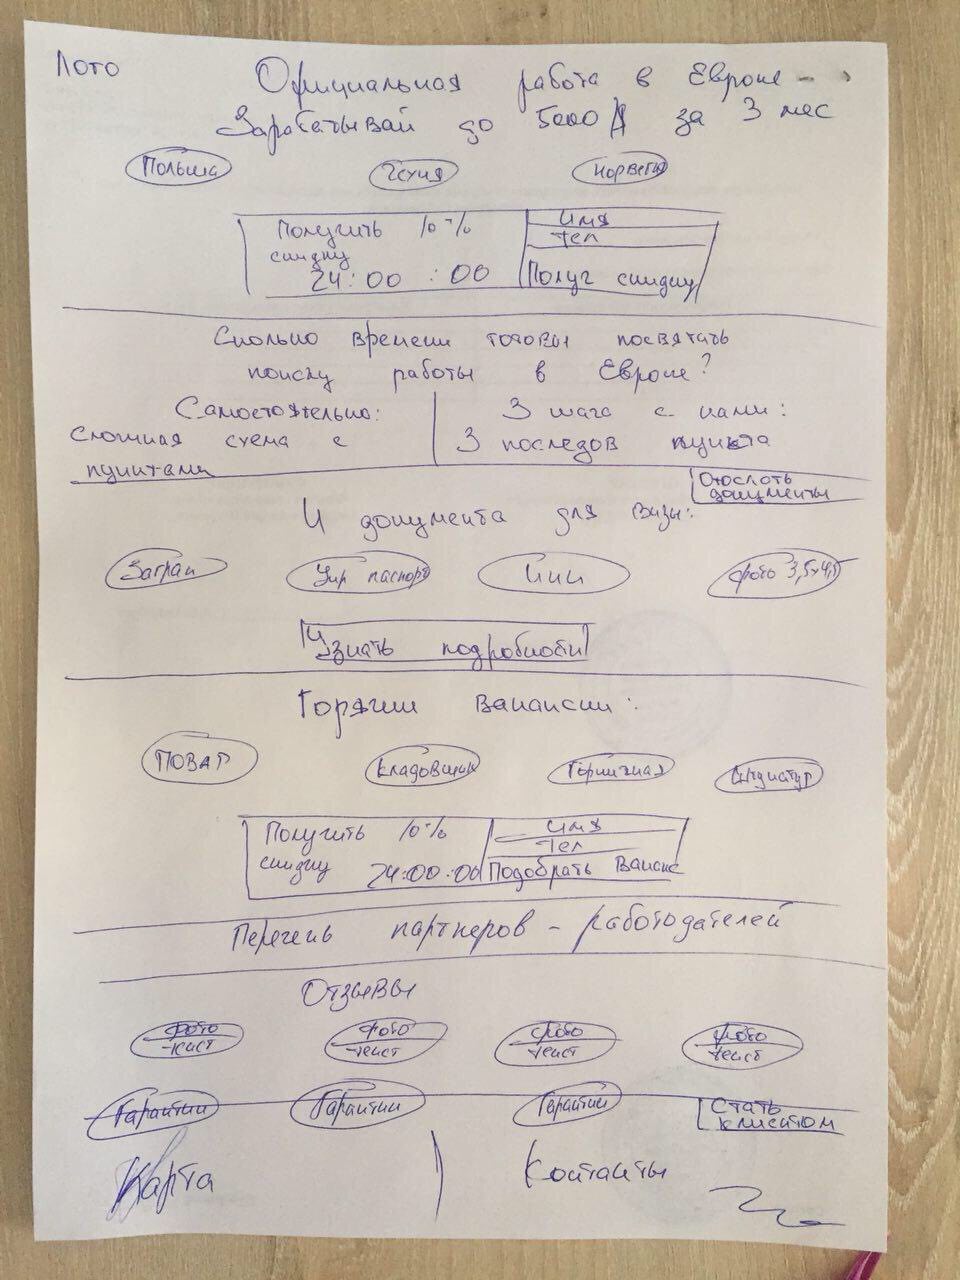 Лого
Официальная работа в Европе
Зарабатывай до 5000 $ за 3 мес
Польша Чехия Норвегия
Получить 10% скидку
24:00:00
Имя
Тел
Получ скидку
Сколько времени готовы посвятать
поиску работы в Европе?
Самостоятельно:
сложная схема с
пунктами
3 шага с нами:
3 последов пункта
Отослать
документы
4 документа для визы:
Загран Укр паспорт ИНН фото 3,5х4,5
Узнать подробности
Горячии вакансии:
Повар Кладовщик Горничная Штукатур
Получить 10%
скидку 24:00:00
Имя
Тел
Подобрать Ваканс
Перечень партнеров - работодателей
Отзывы
фото фото фото фото
текст текст текст текст
Гарантии Гарантии Гарантии
Стать
клиентом
Карта Контакты